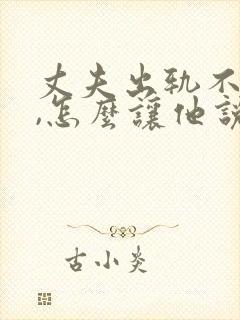 丈夫出軌不
,怎麼讓他說
古小炎